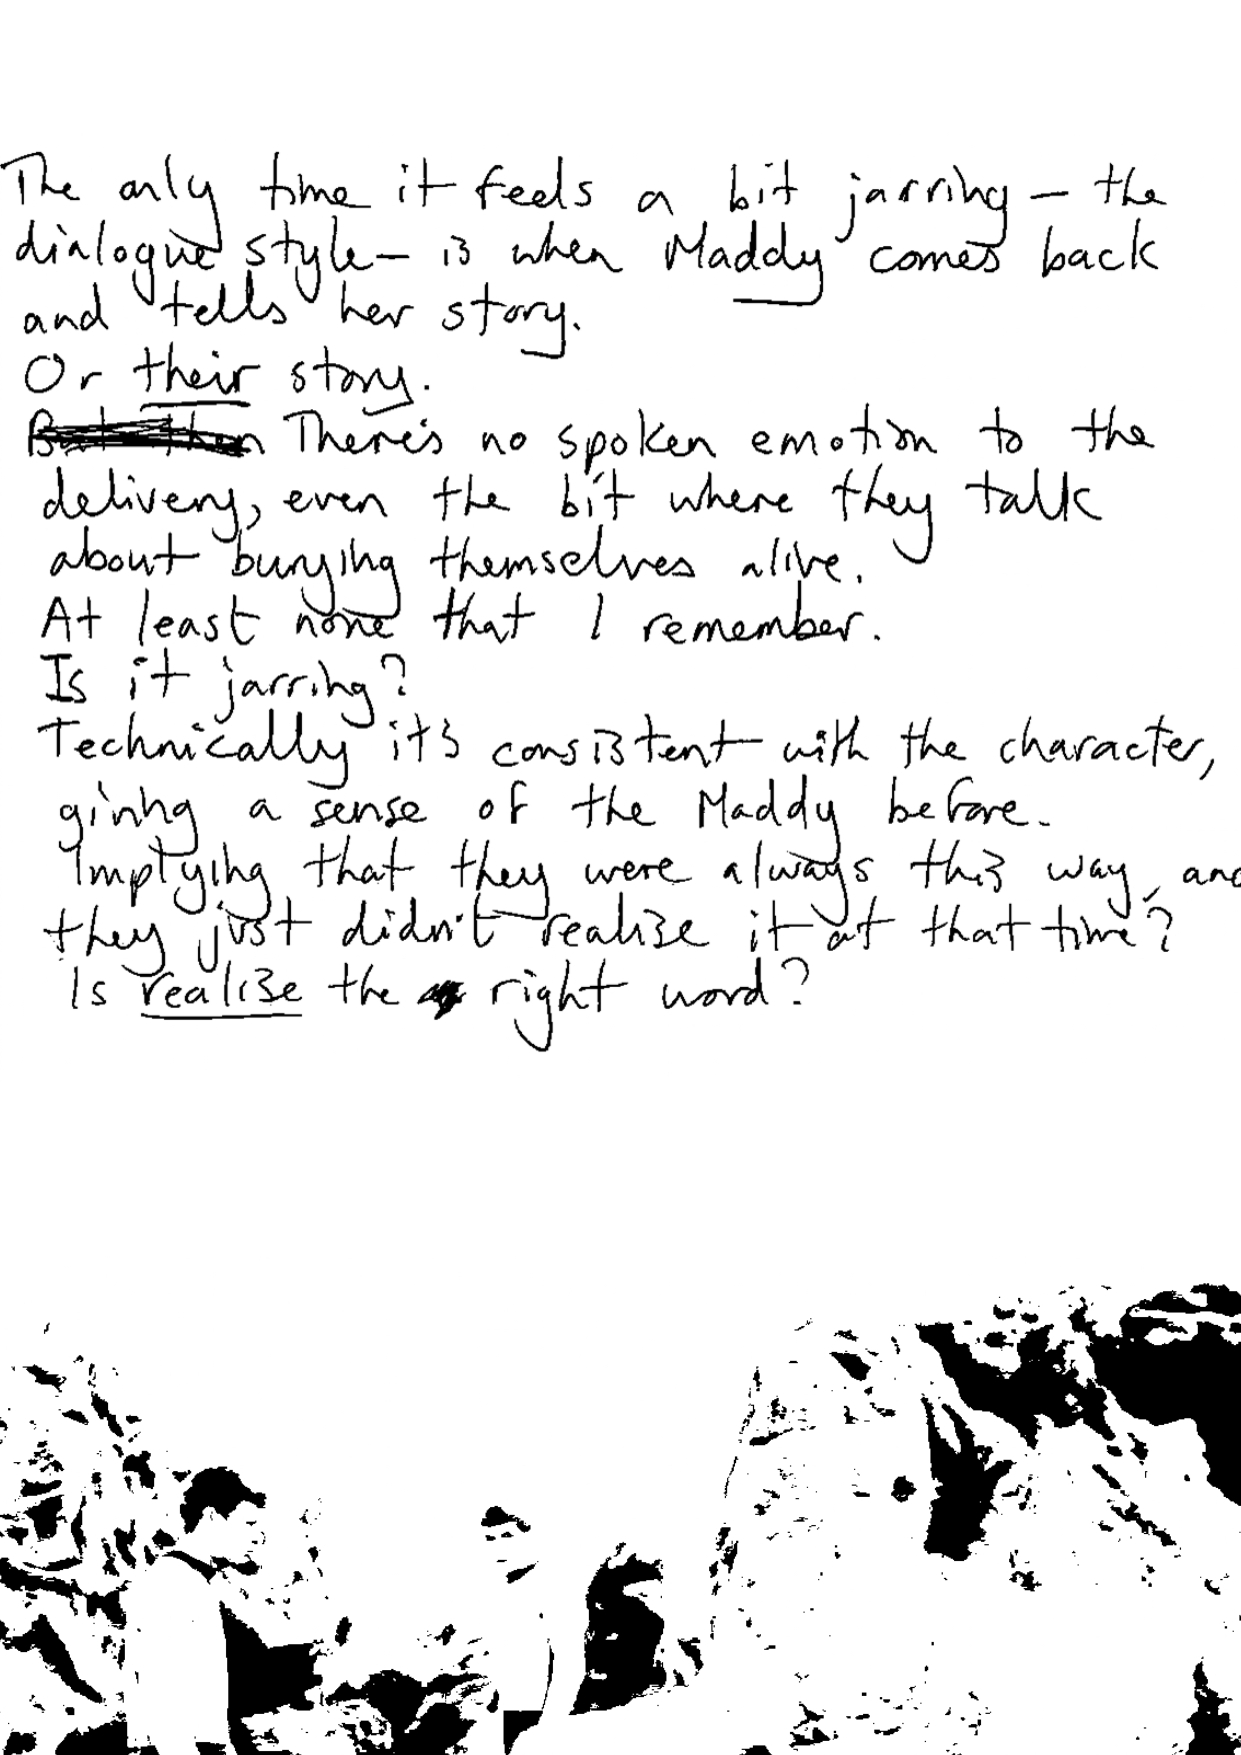 The only time it feels a bit jarring – the
dialogue style – is when Maddy comes back
and tells her story.
Or their story.
But then There's no spoken emotion to the
delivery, even the bit where they talk
about burying themselves alive.
At least none that I remember.
Is it jarring?
Technically it's consistent with the character,
giving a sense of the Maddy before.
Implying that they were always this way, and
they just didn't realise it at that time?
Is realise the right word?